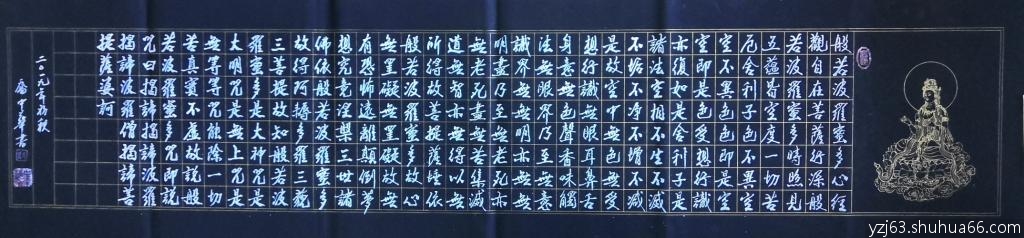 般若波羅蜜多心經
觀自在菩薩行深般
若波羅蜜多時照見
五蘊皆空度一切苦
厄舍利子色不異空
空不異色色即是空
空即是色受想行識
亦復如是舍利子是
諸法空相不生不滅
不垢不淨不增不減
是故空中無色無受
想行識無眼耳鼻舌
身意無色聲香味觸
法無眼界乃至無意
識界無無明亦無無
明盡乃至無老死亦
無老死盡無苦集滅
道無智亦無得以無
所得故菩提薩埵依
般若波羅蜜多故心
無罣礙無罣礙故無
有恐怖遠離顛倒夢
想究竟涅槃三世諸
佛依般若波羅蜜多
故得阿耨多羅三藐
三菩提故知般若波
羅蜜多是大神咒是
大明咒是無上咒是
無等等咒能除一切
苦真實不虛故說般
若波羅蜜多咒即說
咒曰揭諦揭諦波羅
揭諦波羅僧揭諦菩
提薩婆訶
二〇一九年初秋
yzj63.shuhua66.com